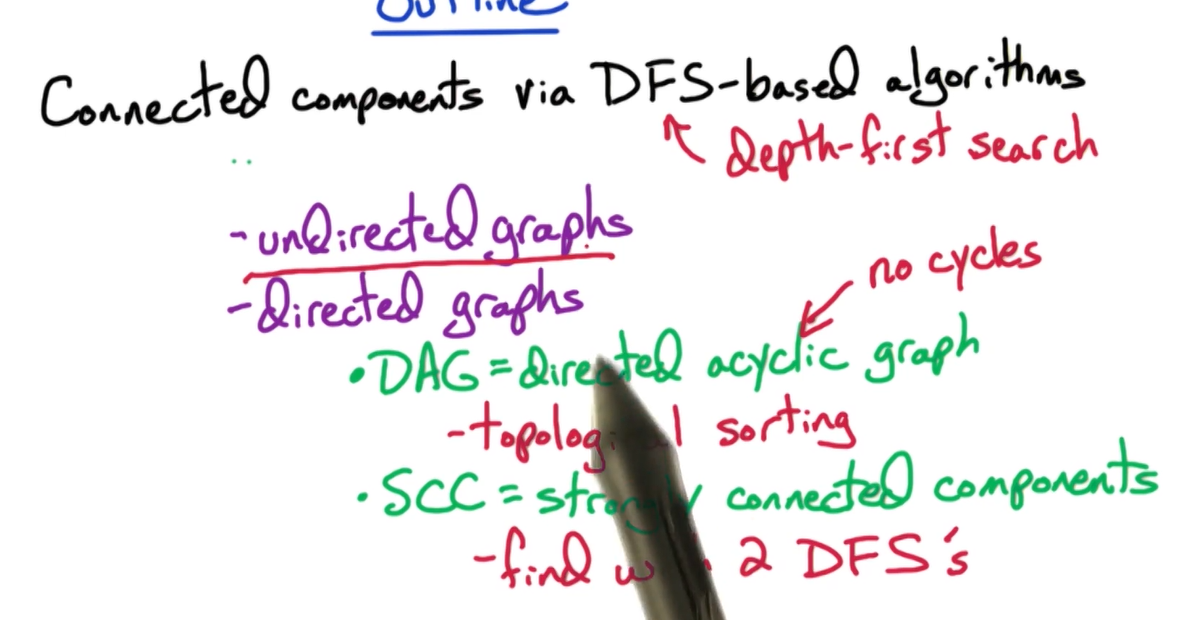 Outline
Connected components via DFS-based algorithms
depth-first search
-undirected graphs
no cycles
-directed graphs
•DAG = directed acyclic graph
-topological sorting
•SCC = strongly connected components
-find 2 DFS's